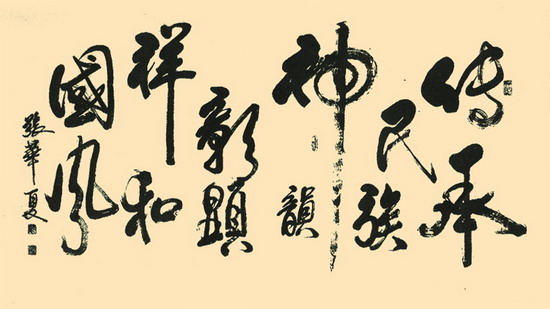 傳承
民族
神韻
彰顯
祥和
國風
張華夏